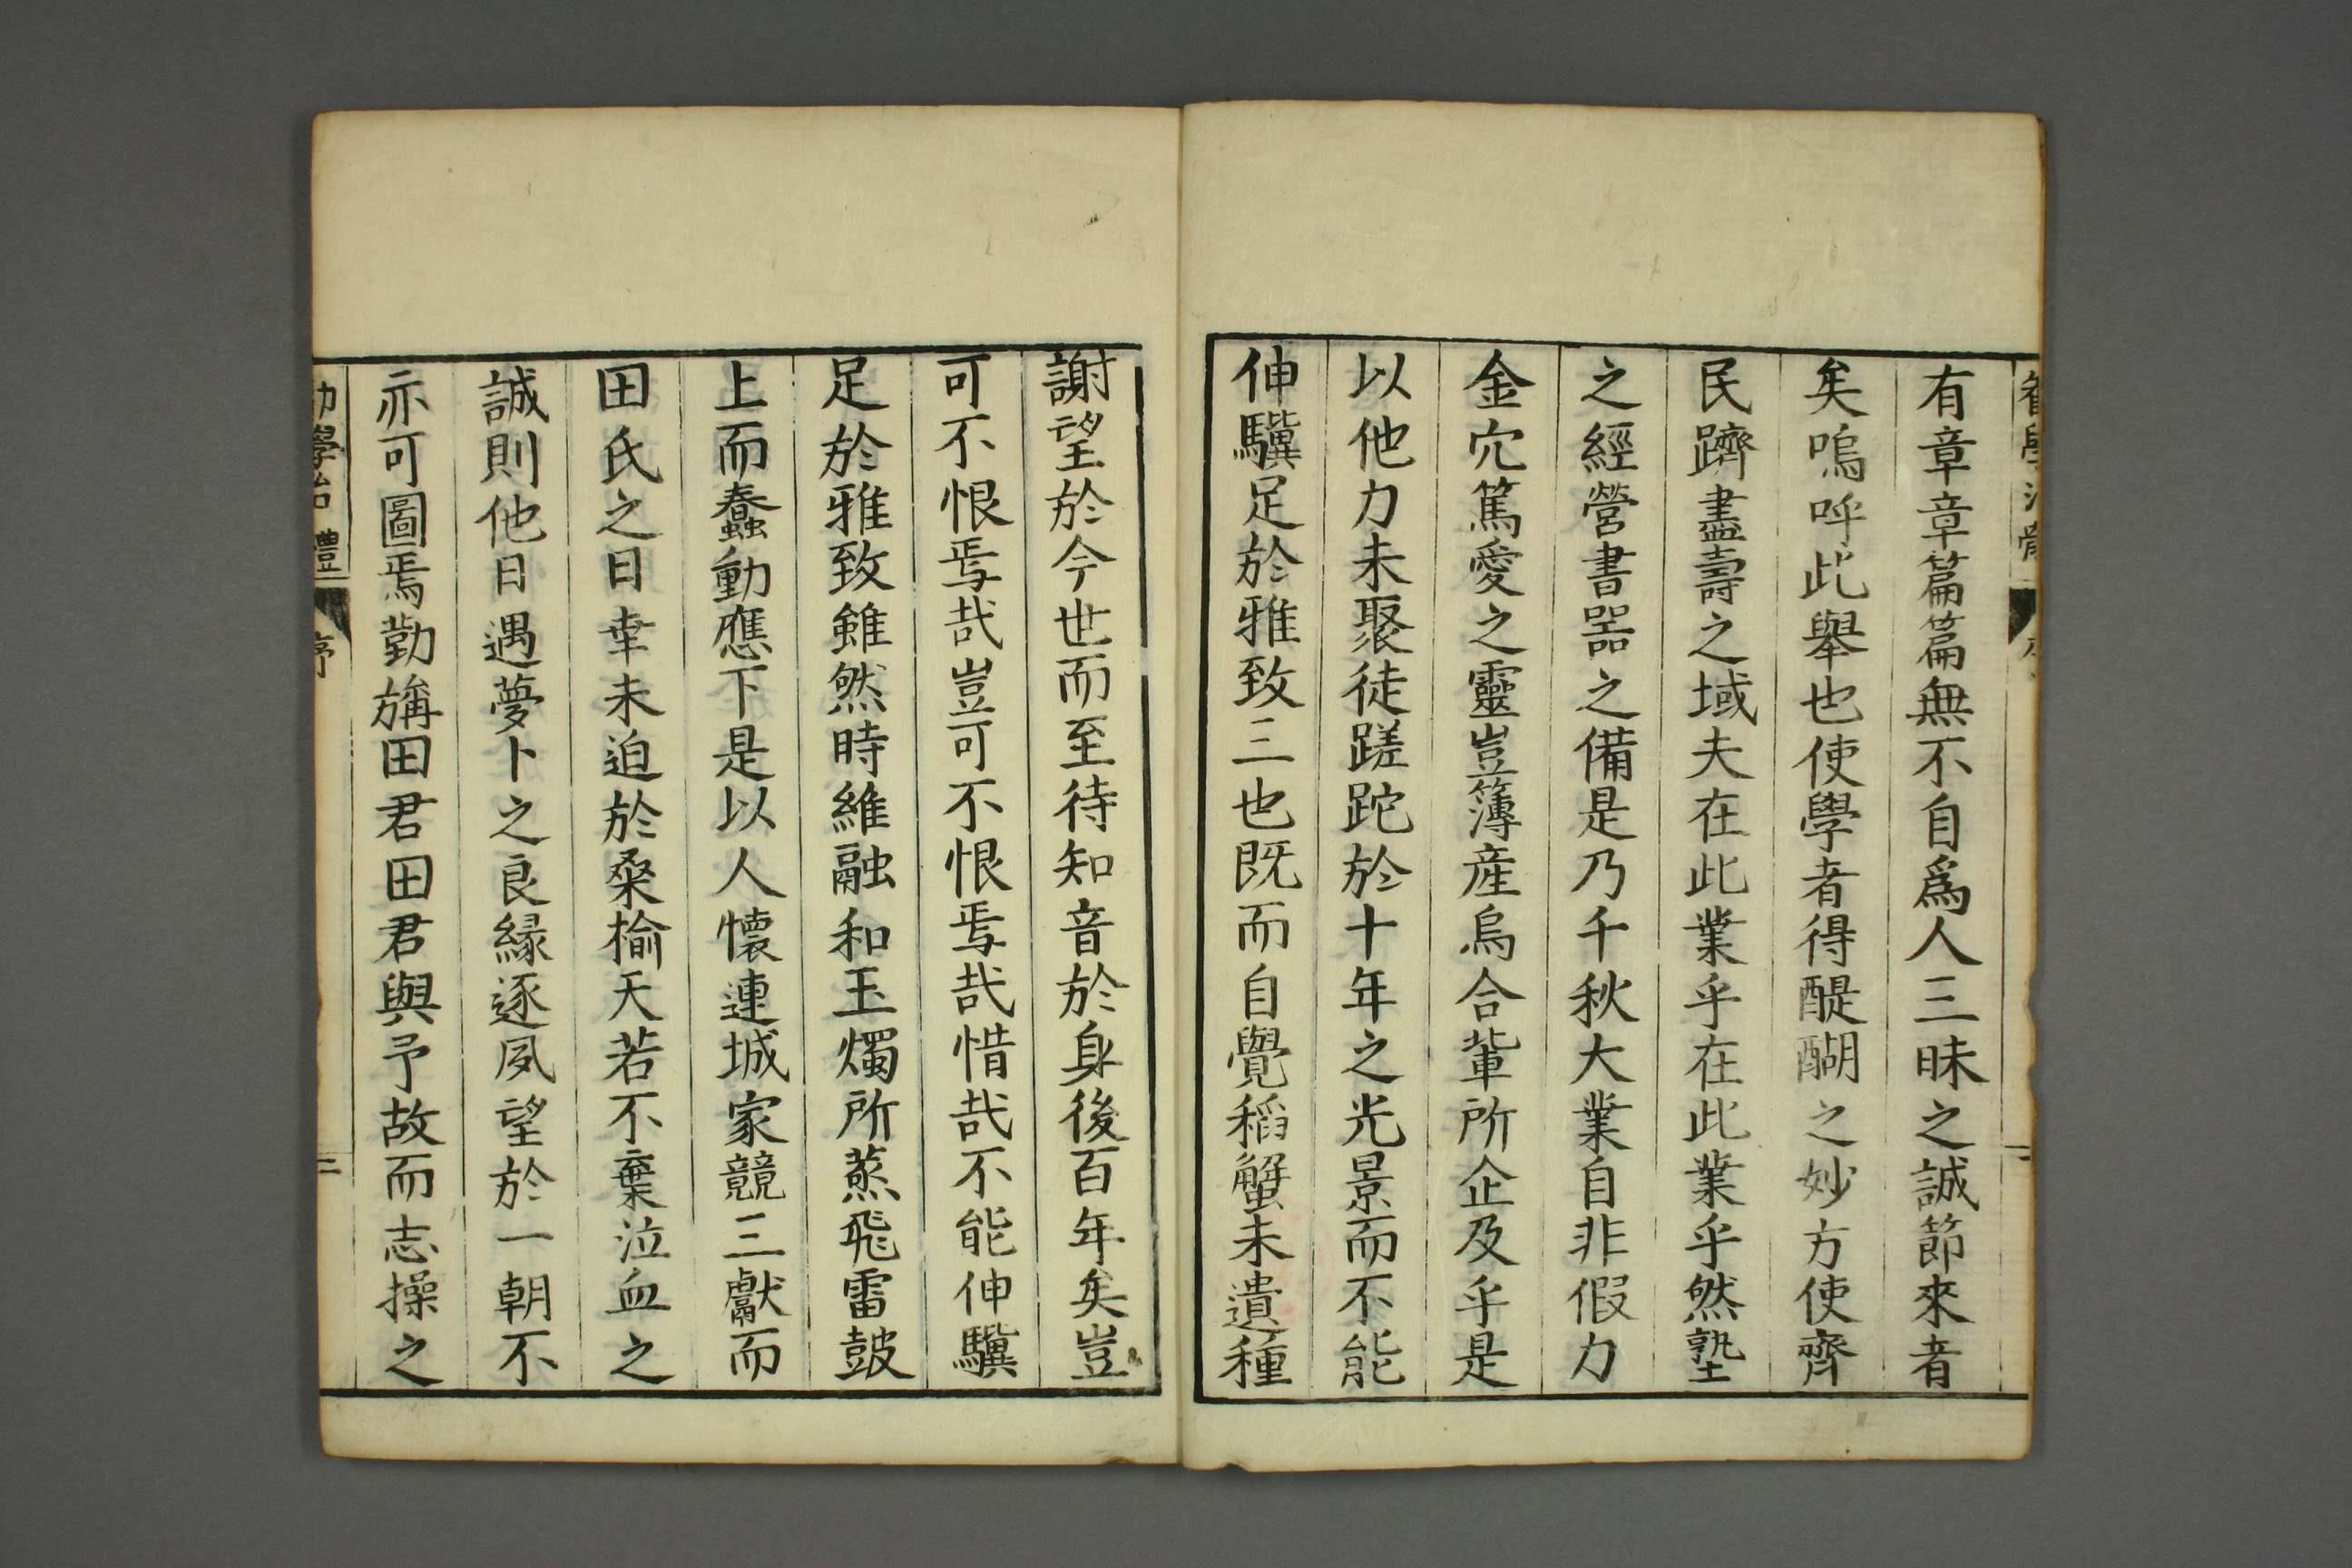 有章章篇篇無不自爲人三昧之誠節來者
矣嗚呼此舉也使學者得醍醐之妙方使齊
民躋盡壽之域夫在此業乎在此業乎然塾
之經營書器之備是乃千秋大業自非假力
金穴篤愛之靈豈簿産烏合輩所企及乎是
以他力未聚徒蹉跎於十年之光景而不能
伸驥足於雅致三也既而自覺稻蟹未遺種
謝望於今世而至待知音於身後百年矣豈
可不恨焉哉豈可不恨焉哉惜哉不能伸驥
足於雅致雖然時維融和玉燭所蒸飛雷鼓
上而蠢動應下是以人懷連城家競三獻而
田氏之日幸未迫於桑楡天若不棄泣血之
誠則他日遇夢卜之良縁逐夙望於一朝不
亦可圖焉勤旃田君田君與予故而志操之
學治體
序
二